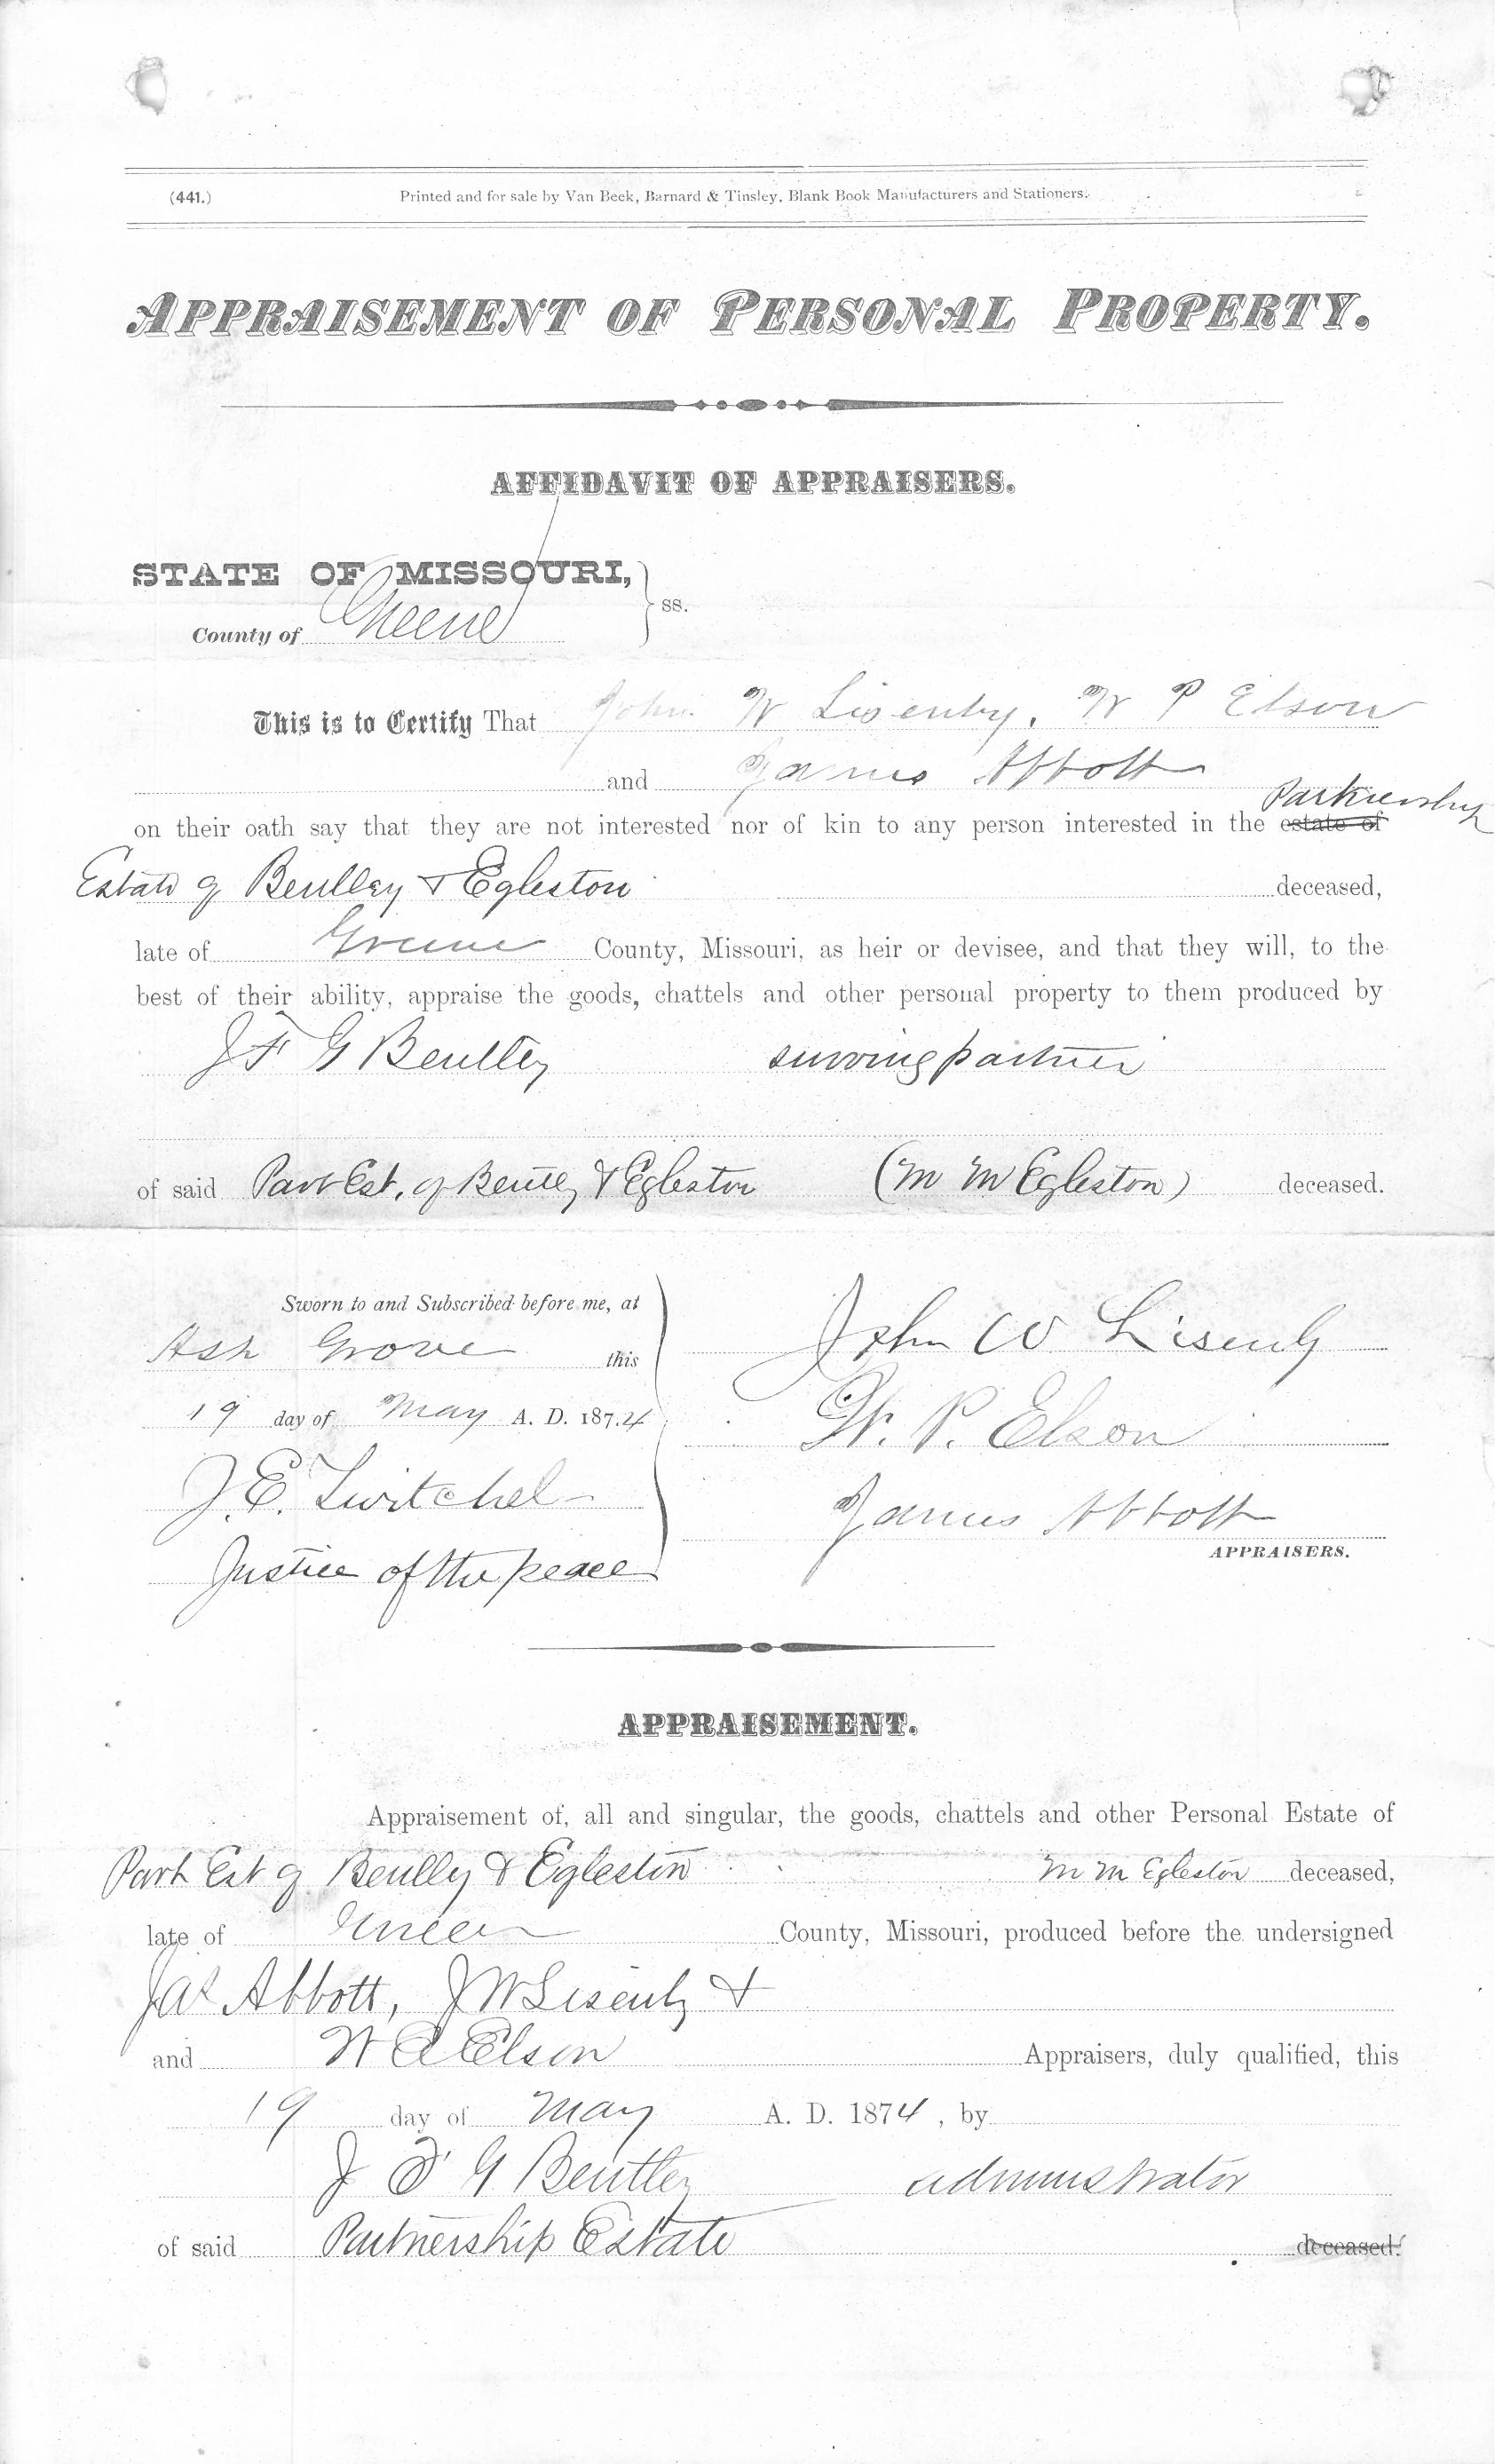 (441.) Printed and for sale by Van Beek, Barnard & Tinsley, Blank Book Manufacturers and Stationers.
APPRAISEMENT OF PERSONAL PROPERTY.
AFFIDAVIT OF APPRAISERS.
STATE OF MISSOURI,
County of Greene } ss.
This is to Certify That John W Lisenby, W P Elson
and James Abbott
Partnership
on their oath say that they are not interested nor of kin to any person interested in the estate of
Estate of Bentley & Egleston deceased,
late of Greene County, Missouri, as heir or devisee, and that they will, to the
best of their ability, appraise the goods, chattels and other personal property to them produced by
J F G Bentley surviving partner
of said Part Est. of Bentley & Egleston (M M Egleston) deceased.
Sworn to and Subscribed before me, at
Ash Grove this
19 day of May A. D. 1874
J. E. Twitchel
Justice of the peace
John W Lisenby
W. P. Elson
James Abbott
APPRAISERS.
APPRAISEMENT.
Appraisement of, all and singular, the goods, chattels and other Personal Estate of
Part Est of Bentley & Egleston M M Egleston deceased,
late of Greene County, Missouri, produced before the undersigned
Jas Abbott, J W Lisenby &
and W P Elson Appraisers, duly qualified, this
19 day of May A. D. 1874, by
J F G Bentley administrator
of said Partnership Estate deceased.